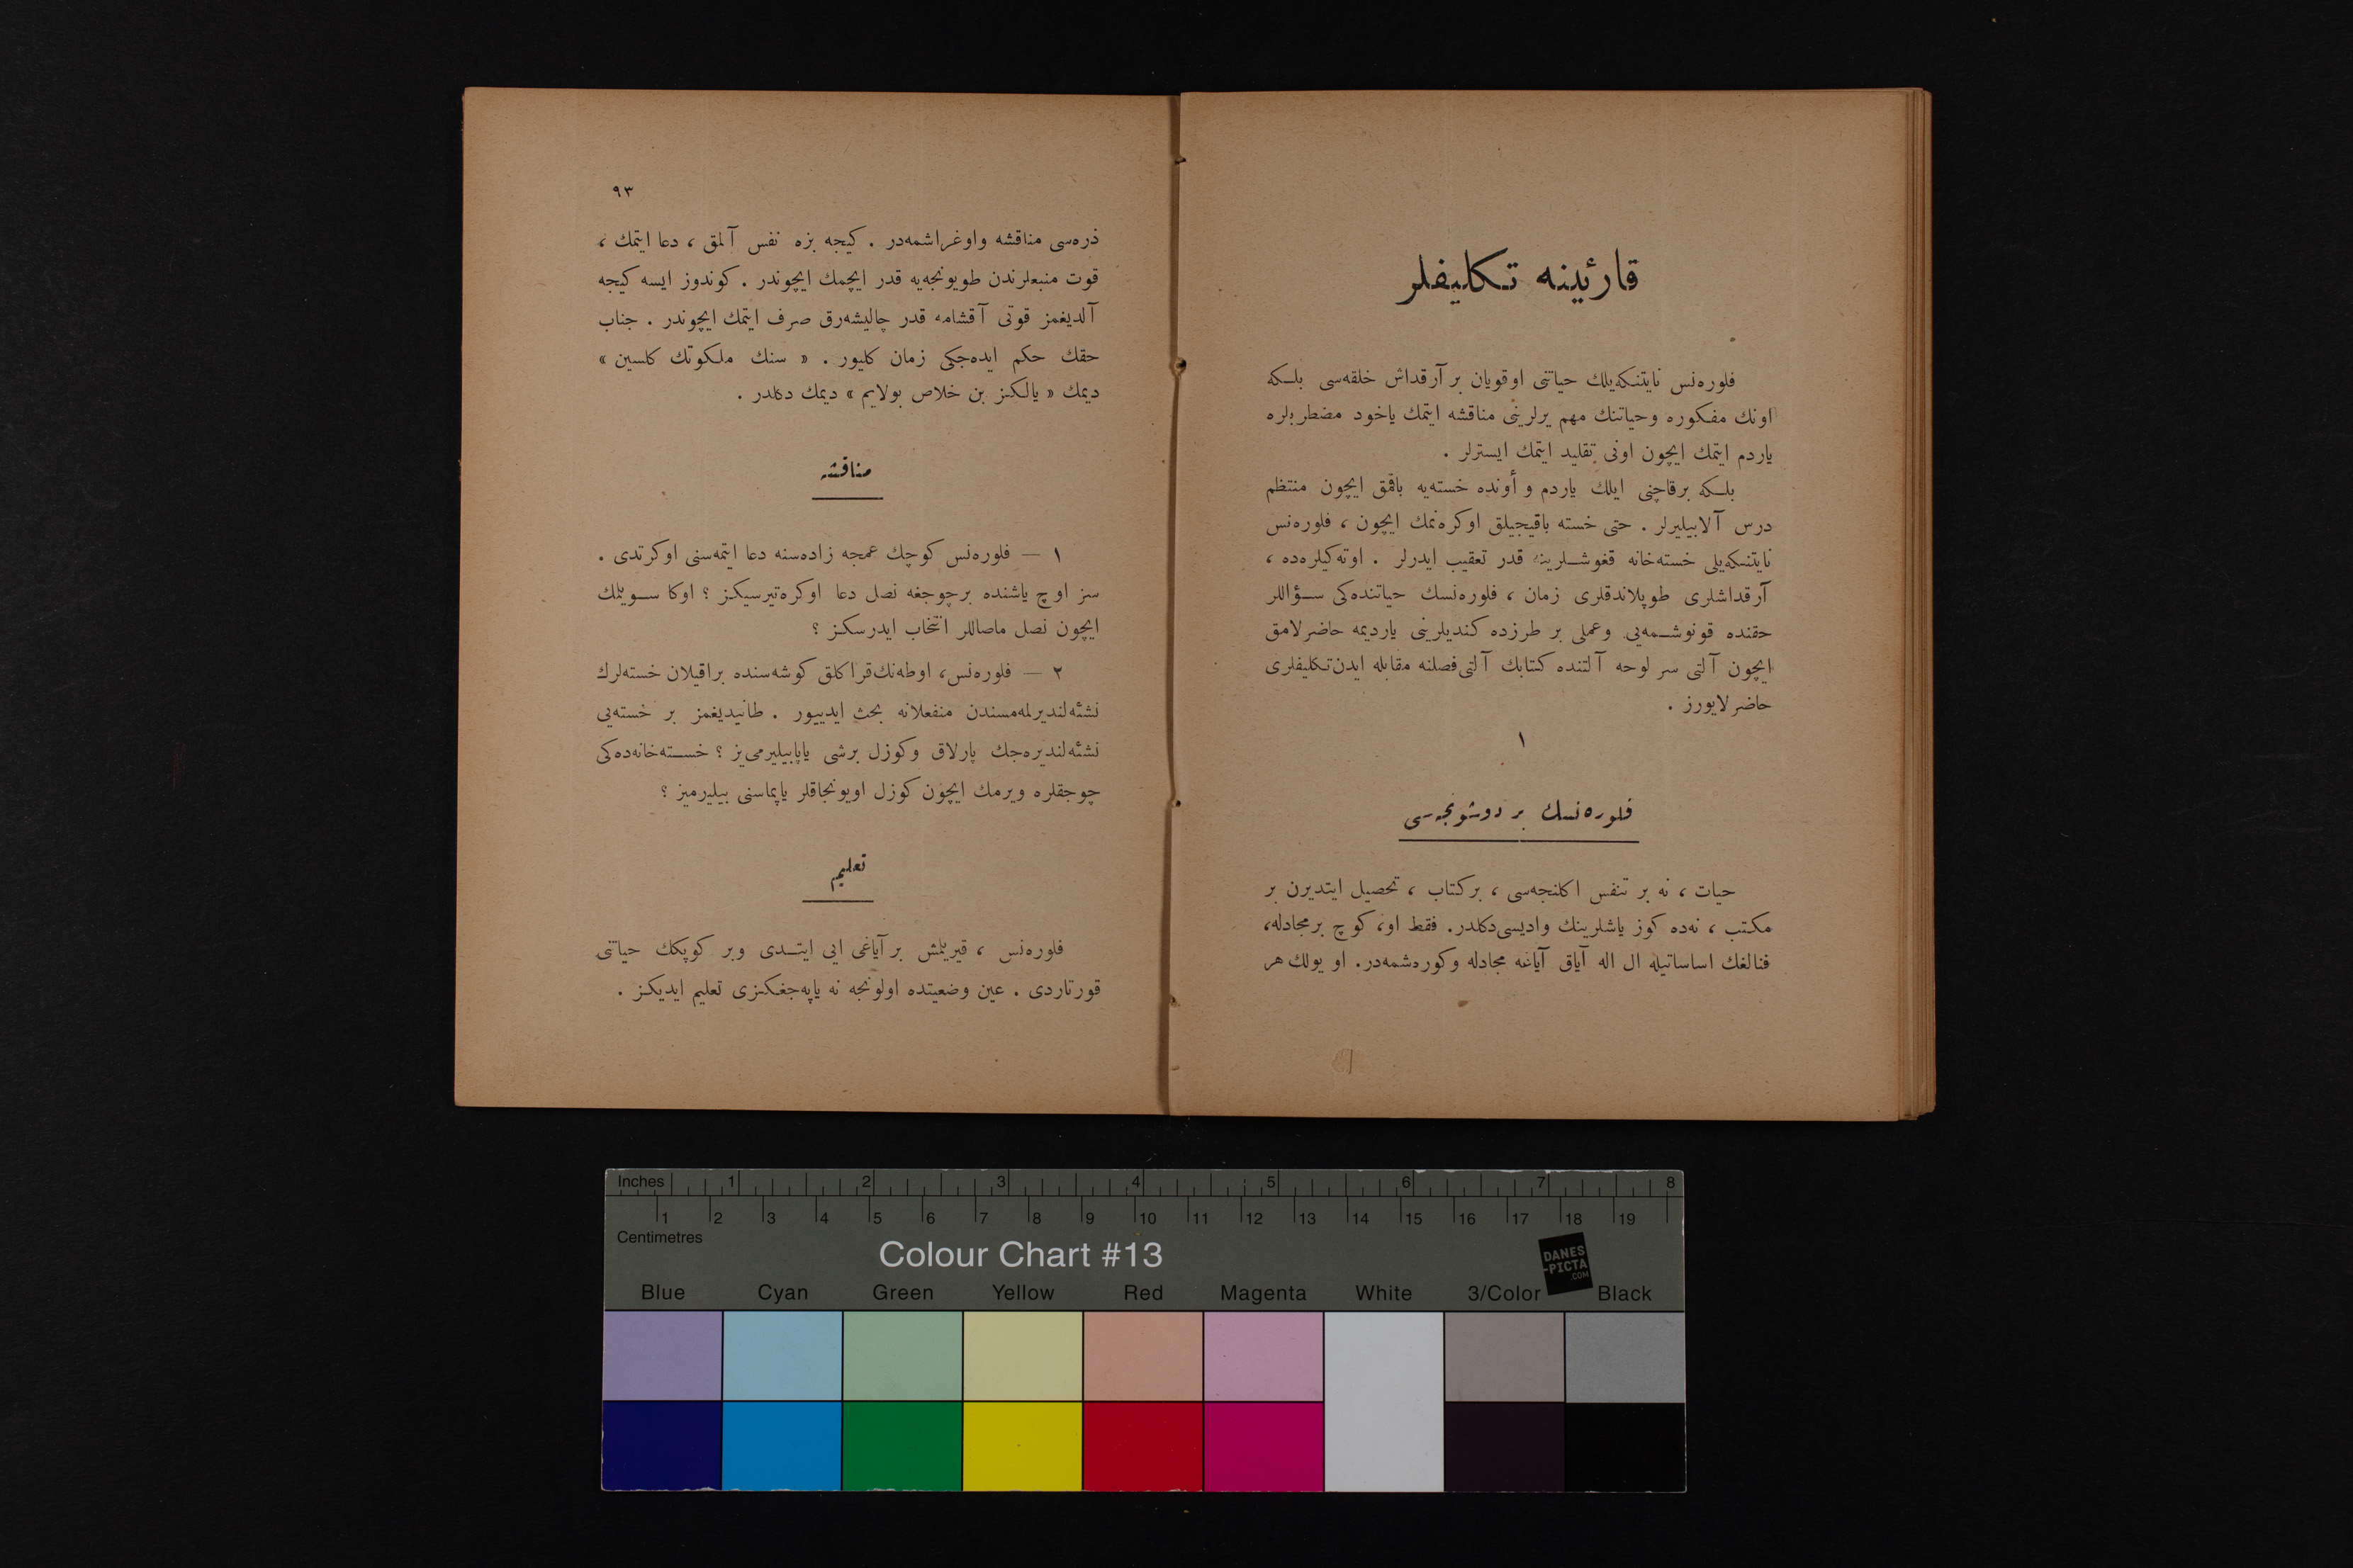 قارئينه تكليفلر
فلوره‌نس نايتنكه‌يلك حياتنى اوقويان بر آرقداش خلقه‌سى بلكه
اونك مفكوره وحياتنك مهم يرلرينى مناقشه ايتمك ياخود مضطربلره
ياردم ايتمك ايچون اونى تقليد ايتمك ايسترلر .
بلكه برقاچنى ايلك ياردم و أونده خسته‌يه باقمق ايچون منتظم
درس آلابيليرلر . حتى خسته باقيجيلق اوكره‌نمك ايچون ، فلوره‌نس
نايتنكه‌يلى خسته‌خانه قغوشلرينه قدر تعقيب ايدرلر . اوته‌كيلره‌ده ،
آرقداشلرى طوپلاندقلرى زمان ، فلوره‌نسك حياتنده‌كى سؤاللر
حقنده قونوشمه‌يى وعملى بر طرزده كنديلرينى يارديمه حاضرلامق
ايچون آلتى سر لوحه آلتنده كتابك آلتى فصلنه مقابله ايدن تكليفلرى
حاضرلايورز .
١
فلوره‌نسك بر دوشونجه‌سى
حيات ، نه بر تنفس اكلنجه‌سى ، بركتاب ، تحصيل ايتديرن بر
مكتب ، نه‌ده كوز ياشلرينك واديسى دكلدر. فقط او، كوچ برمجادله،
فنالغك اساساتيله ال اله آياق آياغه مجادله وكوره‌شمه‌در. او يولك هر
٩٣
ذره‌سى مناقشه واوغراشمه‌در . كيجه بزه نفس آلمق ، دعا ايتمك ،
قوت منبعلرندن طويونجه‌يه قدر ايچمك ايچوندر . كوندوز ايسه كيجه
آلديغمز قوتى آقشامه قدر چاليشه‌رق صرف ايتمك ايچوندر . جناب
حقك حكم ايده‌جكى زمان كليور . « سنك ملكوتك كلسين »
ديمك « يالكز بن خلاص بولايم » ديمك دكلدر .
مناقشه
١ — فلوره‌نس كوچك عمجه زاده‌سنه دعا ايتمه‌سنى اوكرتدى .
سز اوچ ياشنده برچوجغه نصل دعا اوكره‌تيرسيكز ؟ اوكا سويلمك
ايچون نصل ماصاللر انتخاب ايدرسكز ؟
٢ — فلوره‌نس، اوطه‌نك قراكلق كوشه‌سنده براقيلان خسته‌لرك
نشئه‌لنديرلمه‌مسندن منفعلانه بحث ايدييور . طانيديغمز بر خسته‌يى
نشئه‌لنديره‌جك پارلاق وكوزل برشى ياپابيليرمى‌يز ؟ خسته‌خانه‌ده‌كى
چوجقلره ويرمك ايچون كوزل اويونجاقلر ياپماسنى بيليرميز ؟
تعليم
فلوره‌نس ، قيريلمش بر آياغى ايى ايتدى وبر كوپكك حياتنى
قورتاردى . عين وضعيتده اولونجه نه ياپه‌جغكزى تعليم ايديكز .
Inches 1 2 3 4 5 6 7 8
1 2 3 4 5 6 7 8 9 10 11 12 13 14 15 16 17 18 19
Centimetres
Colour Chart #13
DANES
-PICTA
.COM
Blue Cyan Green Yellow Red Magenta White 3/Color Black